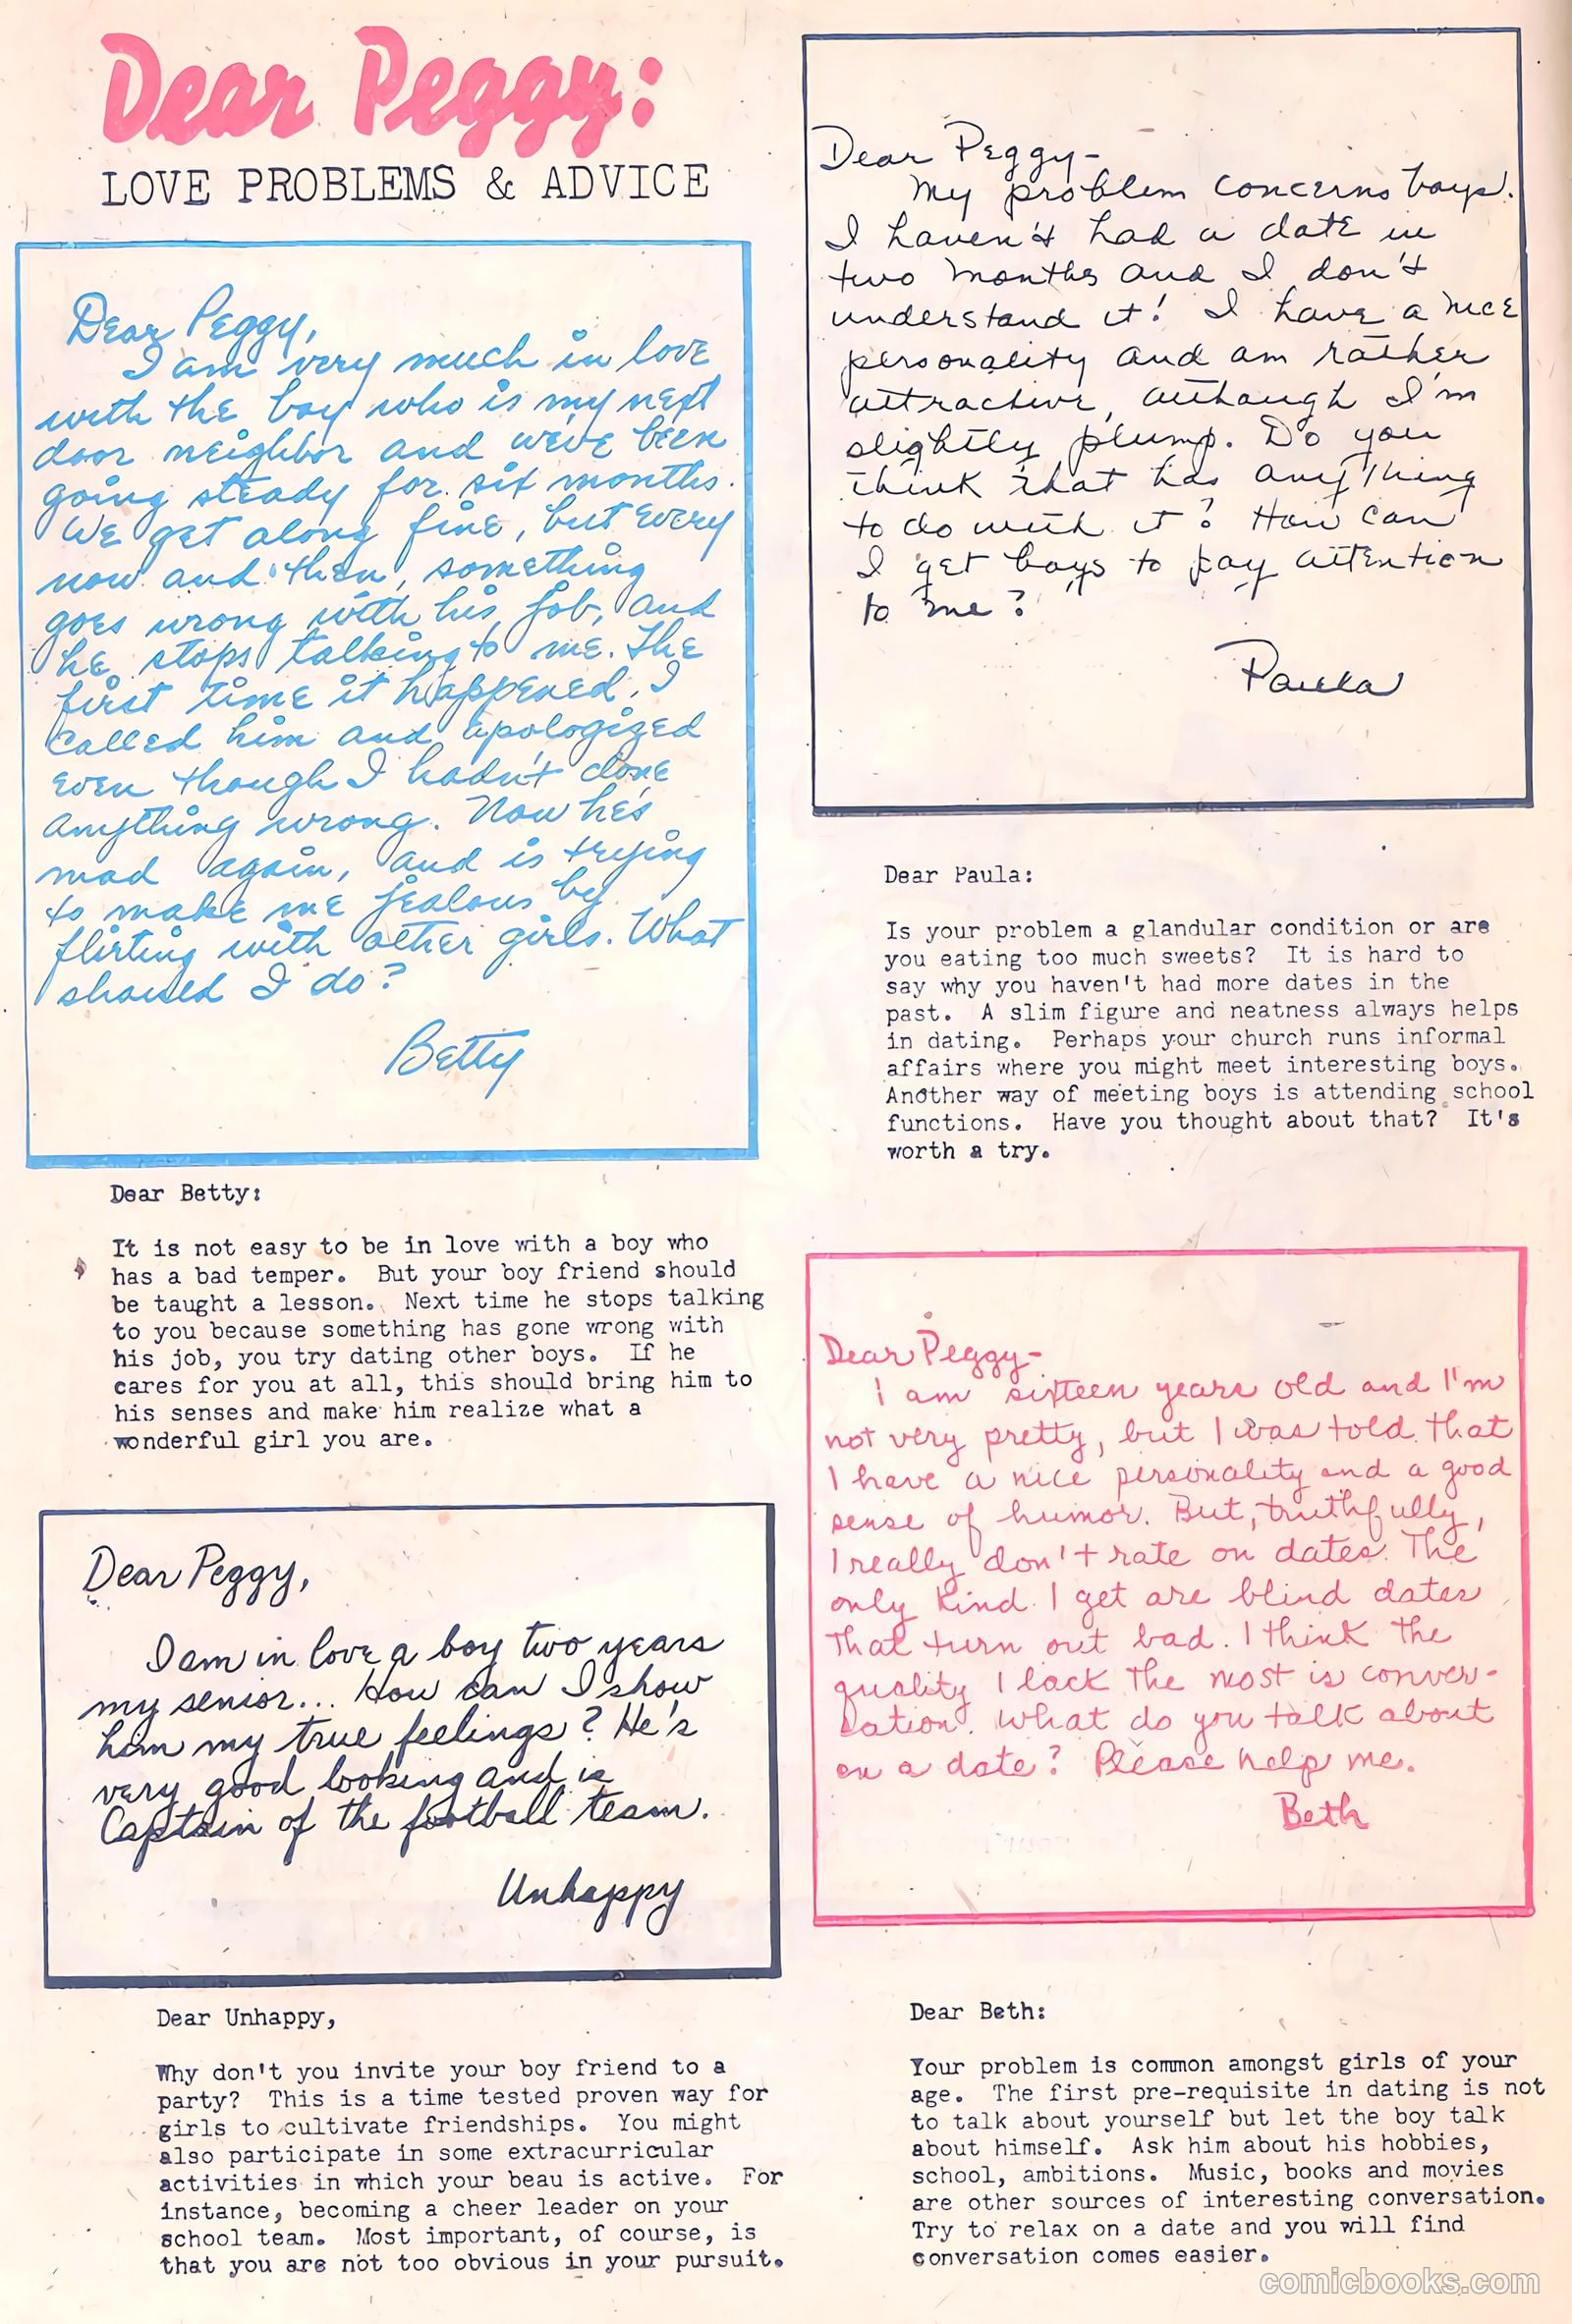 Dear Peggy:
LOVE PROBLEMS & ADVICE
Dear Peggy,
I am very much in love
with the boy who is my next
door neighbor and we've been
going steady for six months.
We get along fine, but every
now and then, something
goes wrong with his job, and
he stops talking to me. The
first time it happened, I
called him and apologized
even though I hadn't done
anything wrong. Now he's
mad again, and is trying
to make me jealous by
flirting with other girls. What
should I do?
Betty
Dear Betty:
It is not easy to be in love with a boy who
has a bad temper. But your boy friend should
be taught a lesson. Next time he stops talking
to you because something has gone wrong with
his job, you try dating other boys. If he
cares for you at all, this should bring him to
his senses and make him realize what a
wonderful girl you are.
Dear Peggy,
I am in love a boy two years
my senior... How can I show
him my true feelings? He's
very good looking and is
Captain of the football team.
Unhappy
Dear Unhappy,
Why don't you invite your boy friend to a
party? This is a time tested proven way for
girls to cultivate friendships. You might
also participate in some extracurricular
activities in which your beau is active. For
instance, becoming a cheer leader on your
school team. Most important, of course, is
that you are not too obvious in your pursuit.
Dear Peggy-
My problem concerns boys.
I haven't had a date in
two months and I don't
understand it! I have a nice
personality and am rather
attractive, although I'm
slightly plump. Do you
think that has anything
to do with it? How can
I get boys to pay attention
to me?
Paula
Dear Paula:
Is your problem a glandular condition or are
you eating too much sweets? It is hard to
say why you haven't had more dates in the
past. A slim figure and neatness always helps
in dating. Perhaps your church runs informal
affairs where you might meet interesting boys.
Another way of meeting boys is attending school
functions. Have you thought about that? It's
worth a try.
Dear Peggy-
I am sixteen years old and I'm
not very pretty, but I was told that
I have a nice personality and a good
sense of humor. But, truthfully,
I really don't rate on dates. The
only kind I get are blind dates
that turn out bad. I think the
quality I lack the most is conver-
sation. What do you talk about
on a date? Please help me.
Beth
Dear Beth:
Your problem is common amongst girls of your
age. The first pre-requisite in dating is not
to talk about yourself but let the boy talk
about himself. Ask him about his hobbies,
school, ambitions. Music, books and movies
are other sources of interesting conversation.
Try to relax on a date and you will find
conversation comes easier.
comicbooks.com